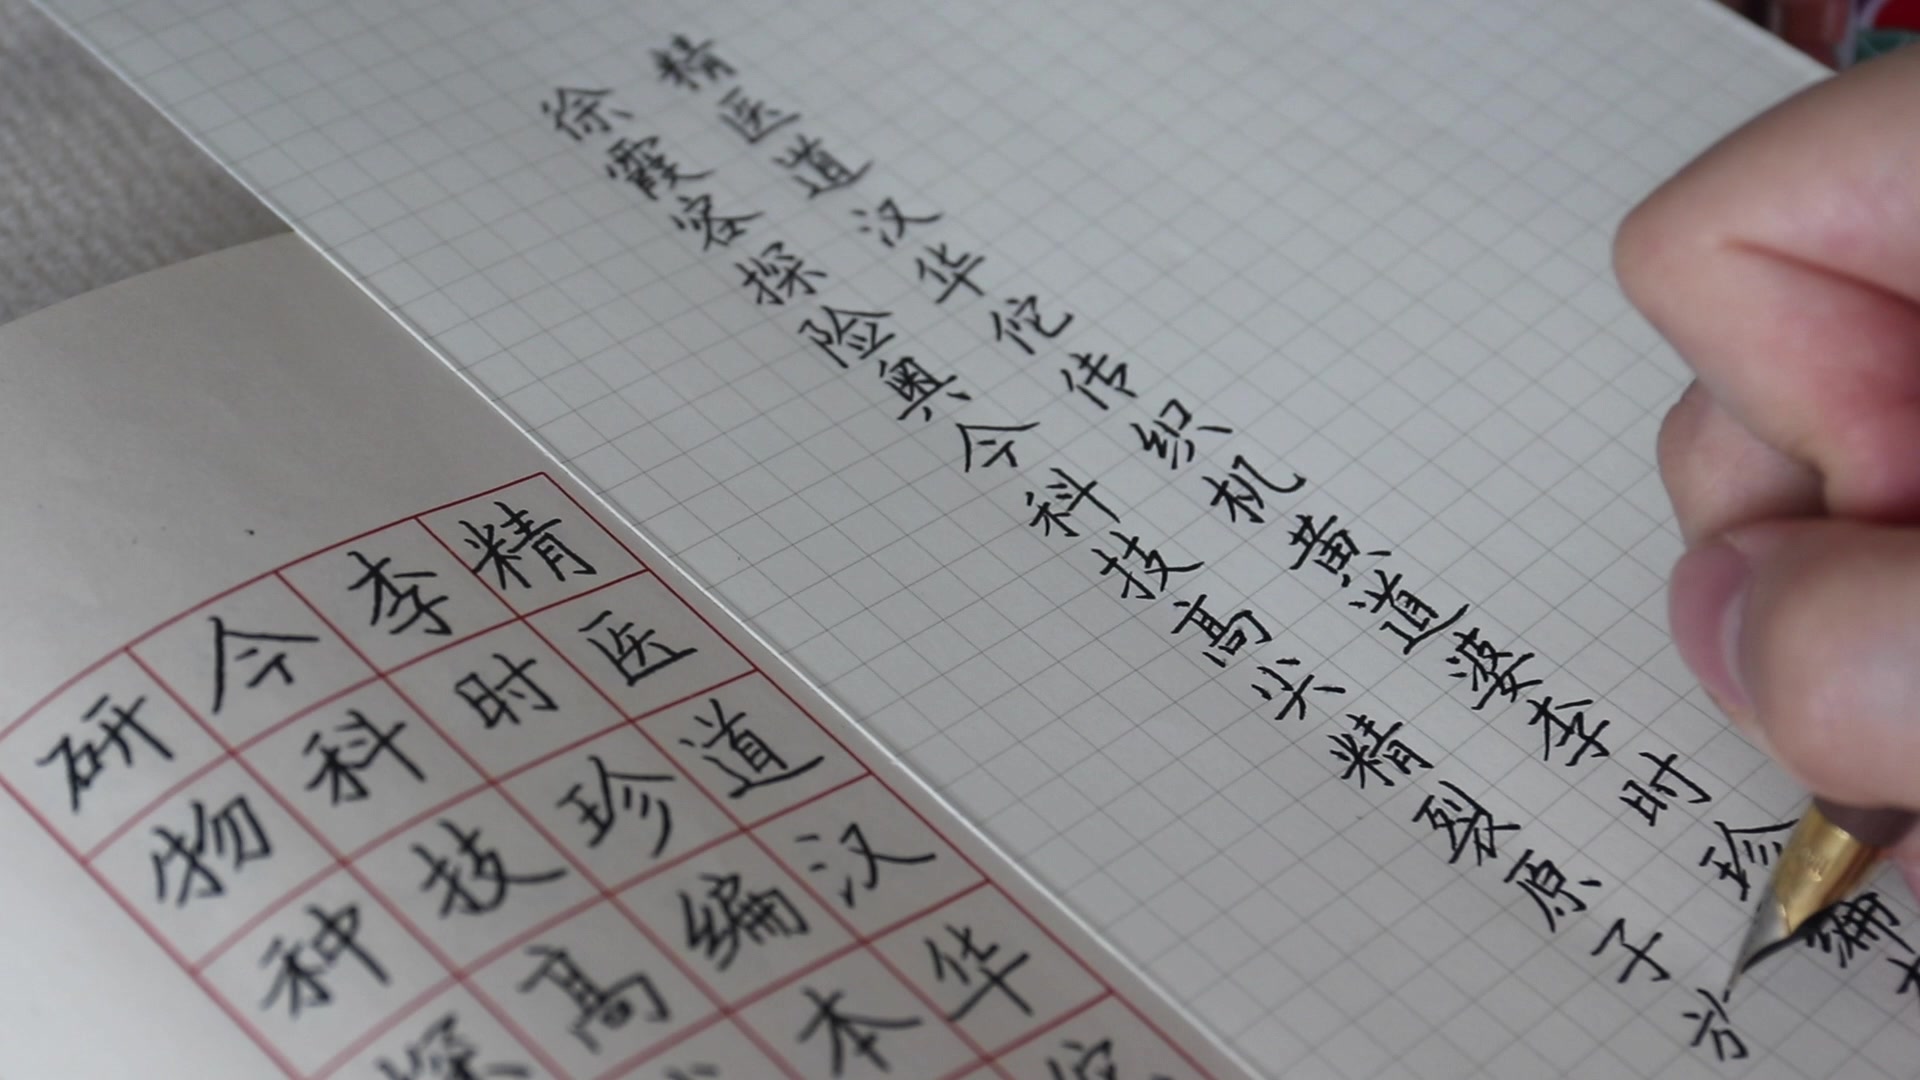 精医道汉华佗传织机黄道婆李时珍编
徐霞客探险奥今科技高尖精裂原子方
精医道汉华佗
李时珍编本
今科技高
研物种探